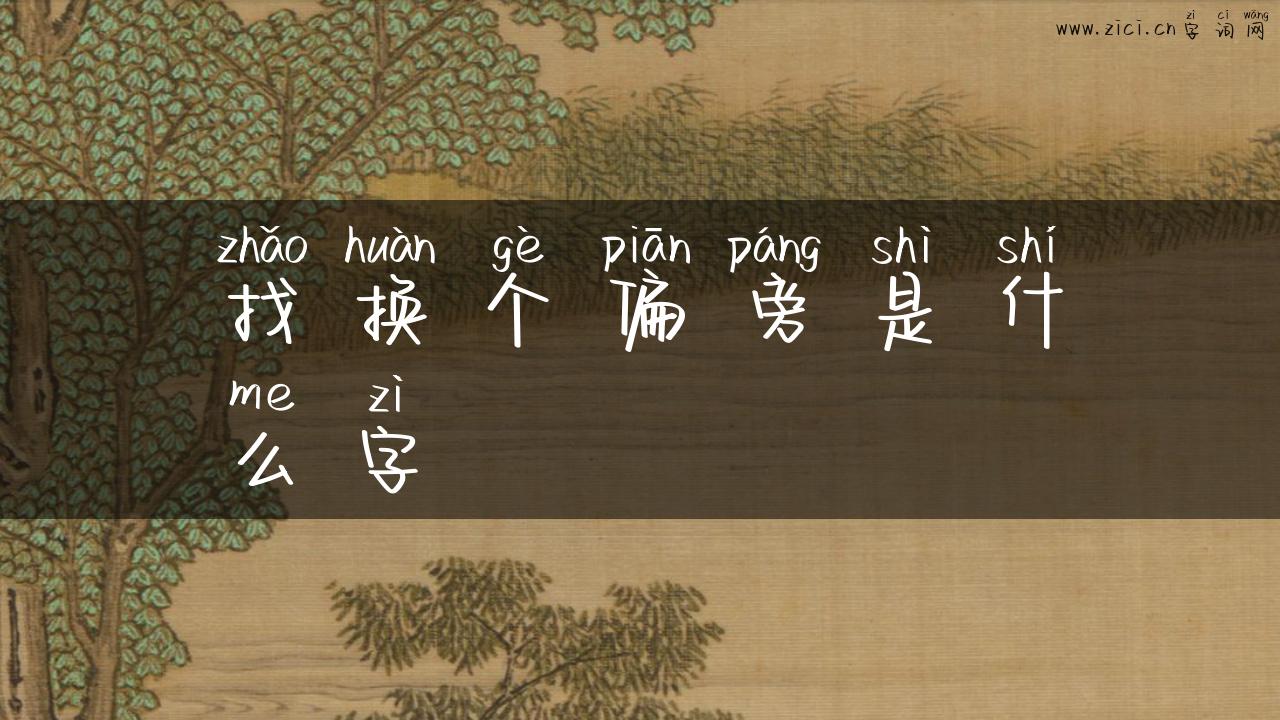 zì cí wǎng
www.zici.cn 字词网
zhǎo huàn gè piān páng shì shí
找换个偏旁是什
me zì
么字